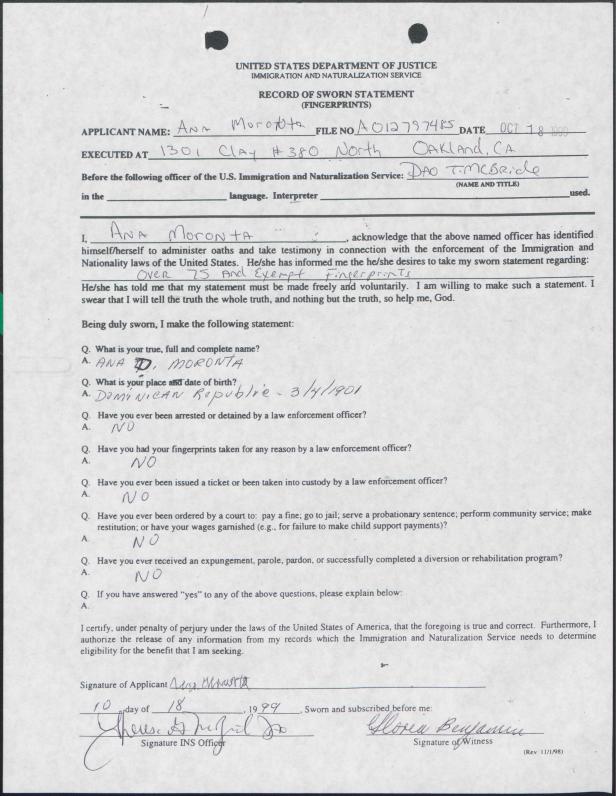 UNITED STATES DEPARTMENT OF JUSTICE
IMMIGRATION AND NATURALIZATION SERVICE
RECORD OF SWORN STATEMENT
(FINGERPRINTS)
APPLICANT NAME: Ana Moronta FILE NO A012797485 DATE OCT 18 1999
EXECUTED AT 1301 Clay #380 North Oakland, CA
Before the following officer of the U.S. Immigration and Naturalization Service: DAO T. McBride
(NAME AND TITLE)
in the language. Interpreter used.
I, ANA MORONTA, acknowledge that the above named officer has identified
himself/herself to administer oaths and take testimony in connection with the enforcement of the Immigration and
Nationality laws of the United States. He/she has informed me the he/she desires to take my sworn statement regarding:
Over 75 and Exempt Fingerprints
He/she has told me that my statement must be made freely and voluntarily. I am willing to make such a statement. I
swear that I will tell the truth the whole truth, and nothing but the truth, so help me, God.
Being duly sworn, I make the following statement:
Q. What is your true, full and complete name?
A. ANA D. MORONTA
Q. What is your place and date of birth?
A. DOMINICAN Republic - 3/4/1901
Q. Have you ever been arrested or detained by a law enforcement officer?
A. NO
Q. Have you had your fingerprints taken for any reason by a law enforcement officer?
A. NO
Q. Have you ever been issued a ticket or been taken into custody by a law enforcement officer?
A. NO
Q. Have you ever been ordered by a court to: pay a fine; go to jail; serve a probationary sentence; perform community service; make
restitution; or have your wages garnished (e.g., for failure to make child support payments)?
A. NO
Q. Have you ever received an expungement, parole, pardon, or successfully completed a diversion or rehabilitation program?
A. NO
Q. If you have answered "yes" to any of the above questions, please explain below:
A.
I certify, under penalty of perjury under the laws of the United States of America, that the foregoing is true and correct. Furthermore, I
authorize the release of any information from my records which the Immigration and Naturalization Service needs to determine
eligibility for the benefit that I am seeking.
Signature of Applicant
10 day of 18, 1999. Sworn and subscribed before me:
Gloria Benjamin
Signature INS Officer Signature of Witness
(Rev 11/1/98)